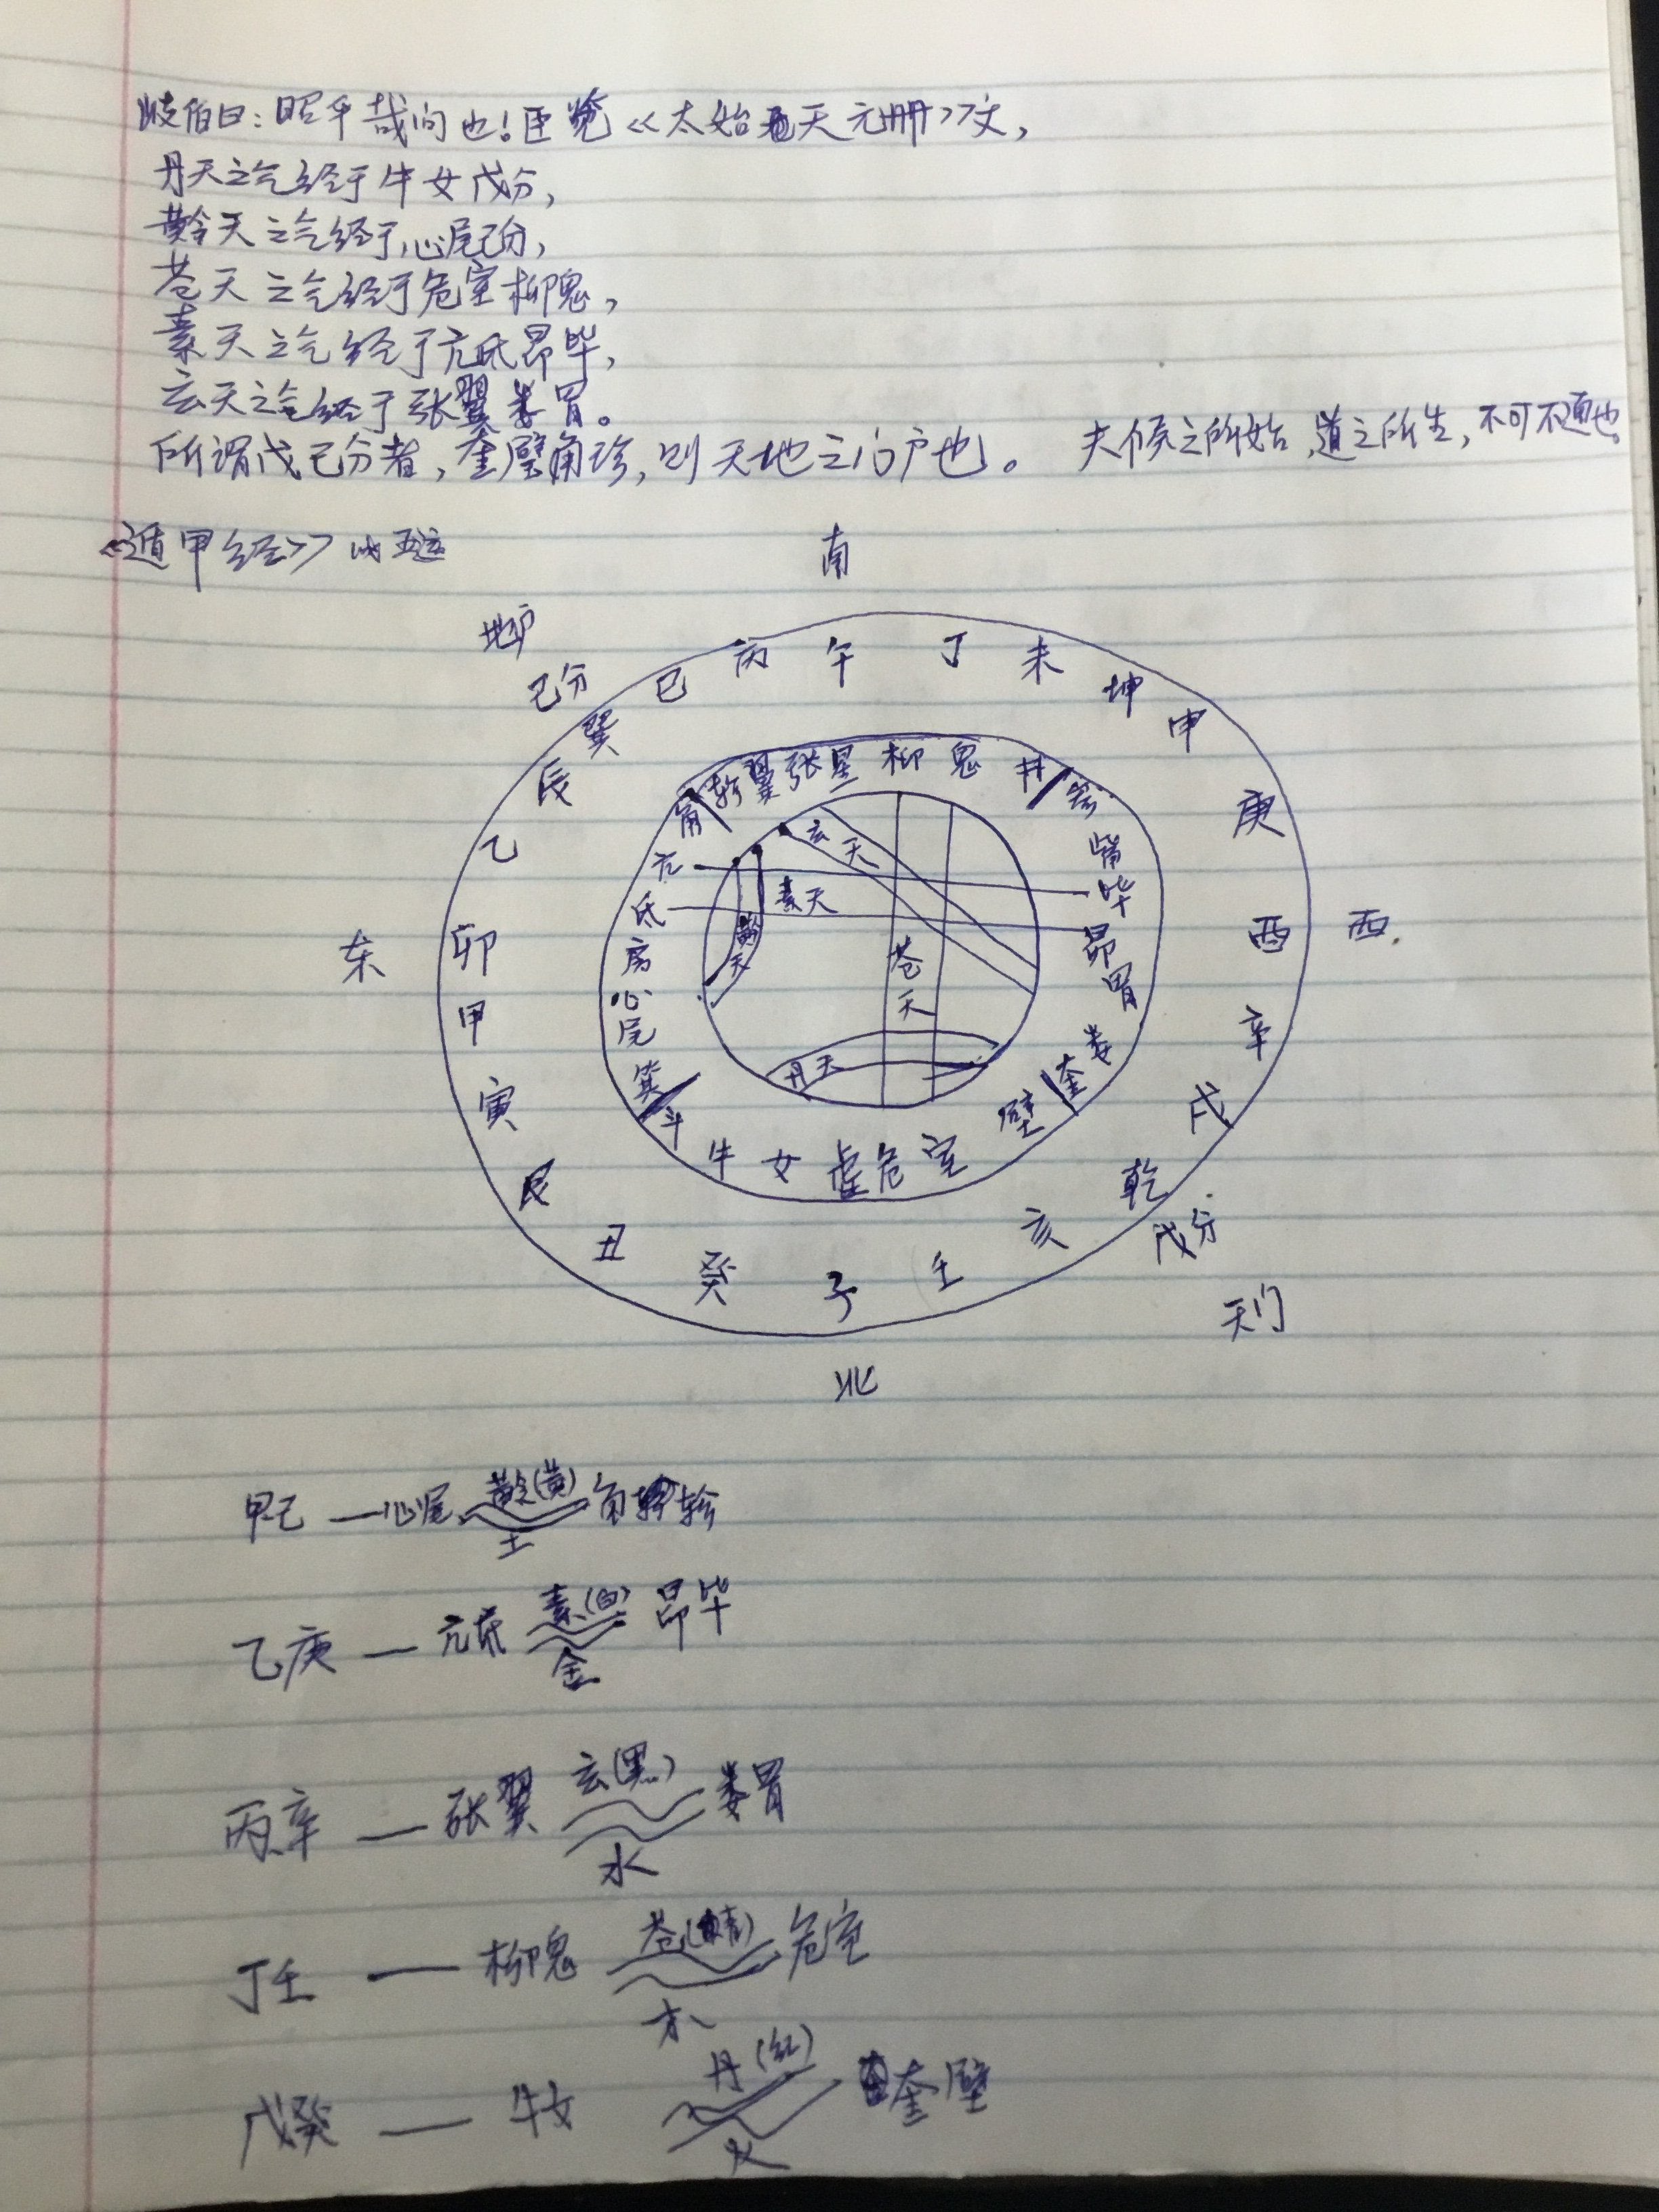 岐伯曰：昭乎哉问也！臣览《太始天元册》文，
丹天之气经于牛女戊分，
黅天之气经于心尾己分，
苍天之气经于危室柳鬼，
素天之气经于亢氐昴毕，
玄天之气经于张翼娄胃。
所谓戊己分者，奎壁角轸，则天地之门户也。 夫候之所始，道之所生，不可不通也。
《遁甲经》 五运
南
地户
己分
巽 巳 丙 午 丁 未 坤 申
辰
乙
卯
甲
寅
艮
丑
癸 子 壬 亥 乾 戌 辛 酉 庚
东
西
戊分
天门
北
角 轸 翼 张 星 柳 鬼 井 参
亢
氐
房
心
尾
箕
斗 牛 女 虚 危 室 壁 奎 娄
觜
毕
昴
胃
玄天
素天
黅天
苍天
丹天
甲己 — 心尾 黅(黄) 角轸
土
乙庚 — 亢氐 素(白) 昴毕
金
丙辛 — 张翼 玄(黑) 娄胃
水
丁壬 — 柳鬼 苍(青) 危室
木
戊癸 — 牛女 丹(红) 奎壁
火